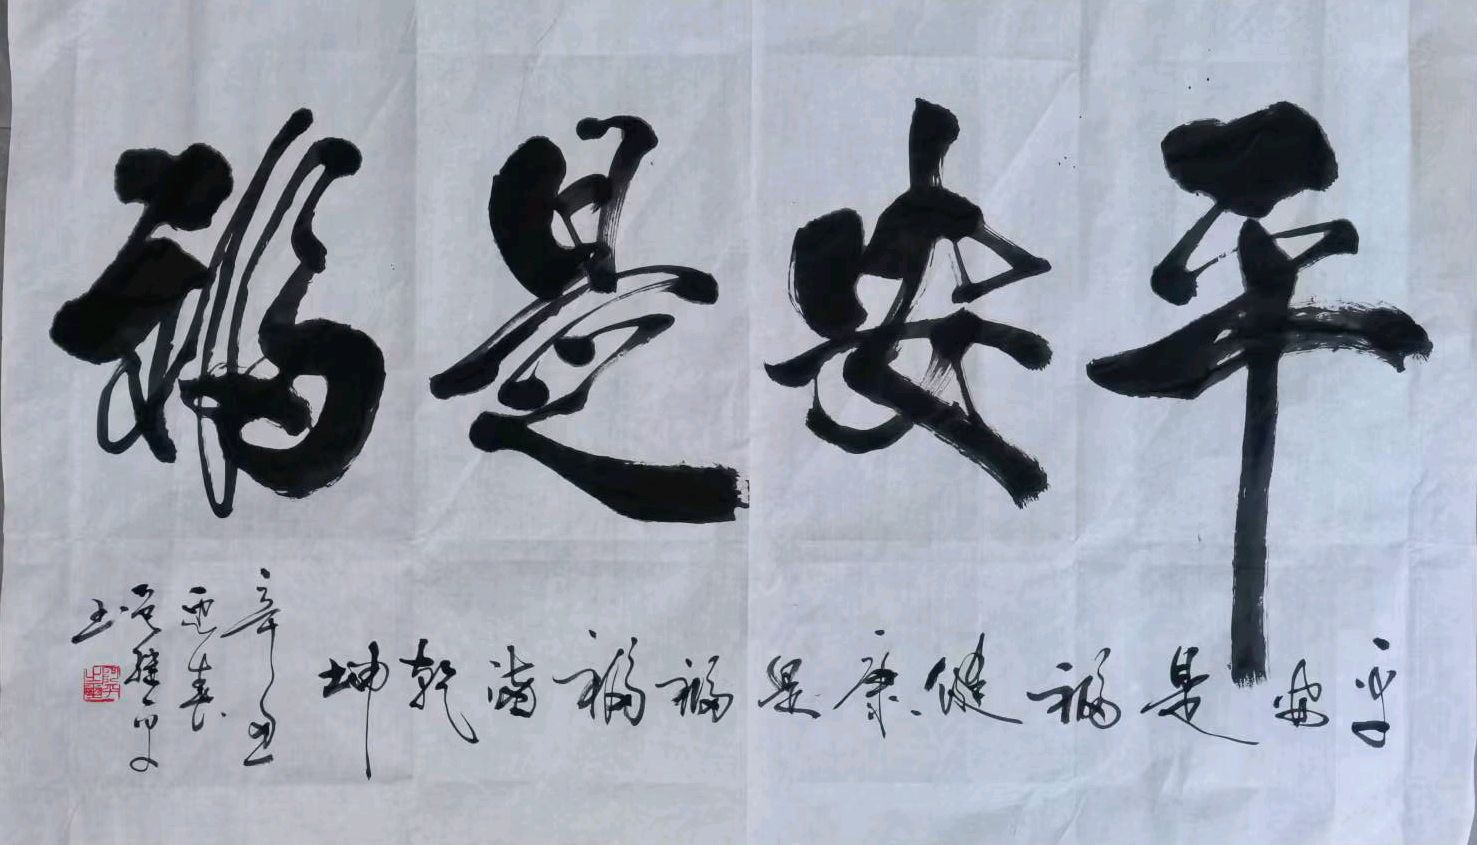 平安是福
平安是福健康是福福满乾坤
辛丑
迎春